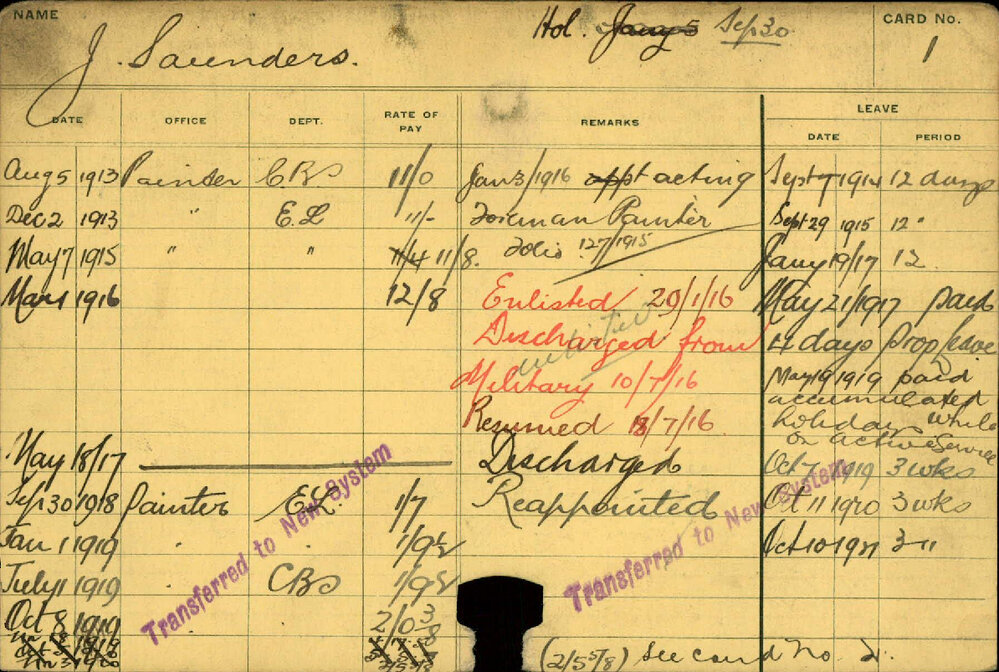 NAME
Hol. Jany 5 Sep 30
CARD No.
1
J. Saunders.
DATE OFFICE DEPT. RATE OF PAY REMARKS LEAVE
DATE PERIOD
Aug 5 1913 Painter C.B.S 11/0 Jan 3/1916 appt acting Sept 7 1914 12 days
Dec 2 1913 " E.L 11/- Foreman Painter Sept 29 1915 12 "
May 7 1915 " " 11/4 11/8. Folio 127/1915 Jany 19/17 12
Mar 1 1916 12/8 Enlisted 29/1/16 May 21/1917 paid
Discharged from 4 days Prop leave
Military 10/7/16 May 19 1919 paid
accumulated
Resumed 18/7/16 holiday while
on active Service
May 18/17 Discharged Oct 7 1919 3 wks
Sep 30 1918 Painter E.L. 1/7 Reappointed Oct 11 1920 3 wks
Jan 1 1919 " 1/9½ Oct 10 1921 3 "
July 1 1919 CBS 1/9½
Oct 8 1919 2/0
(2/5 5/8) See card No 2.
Transferred to New System
Transferred to New System